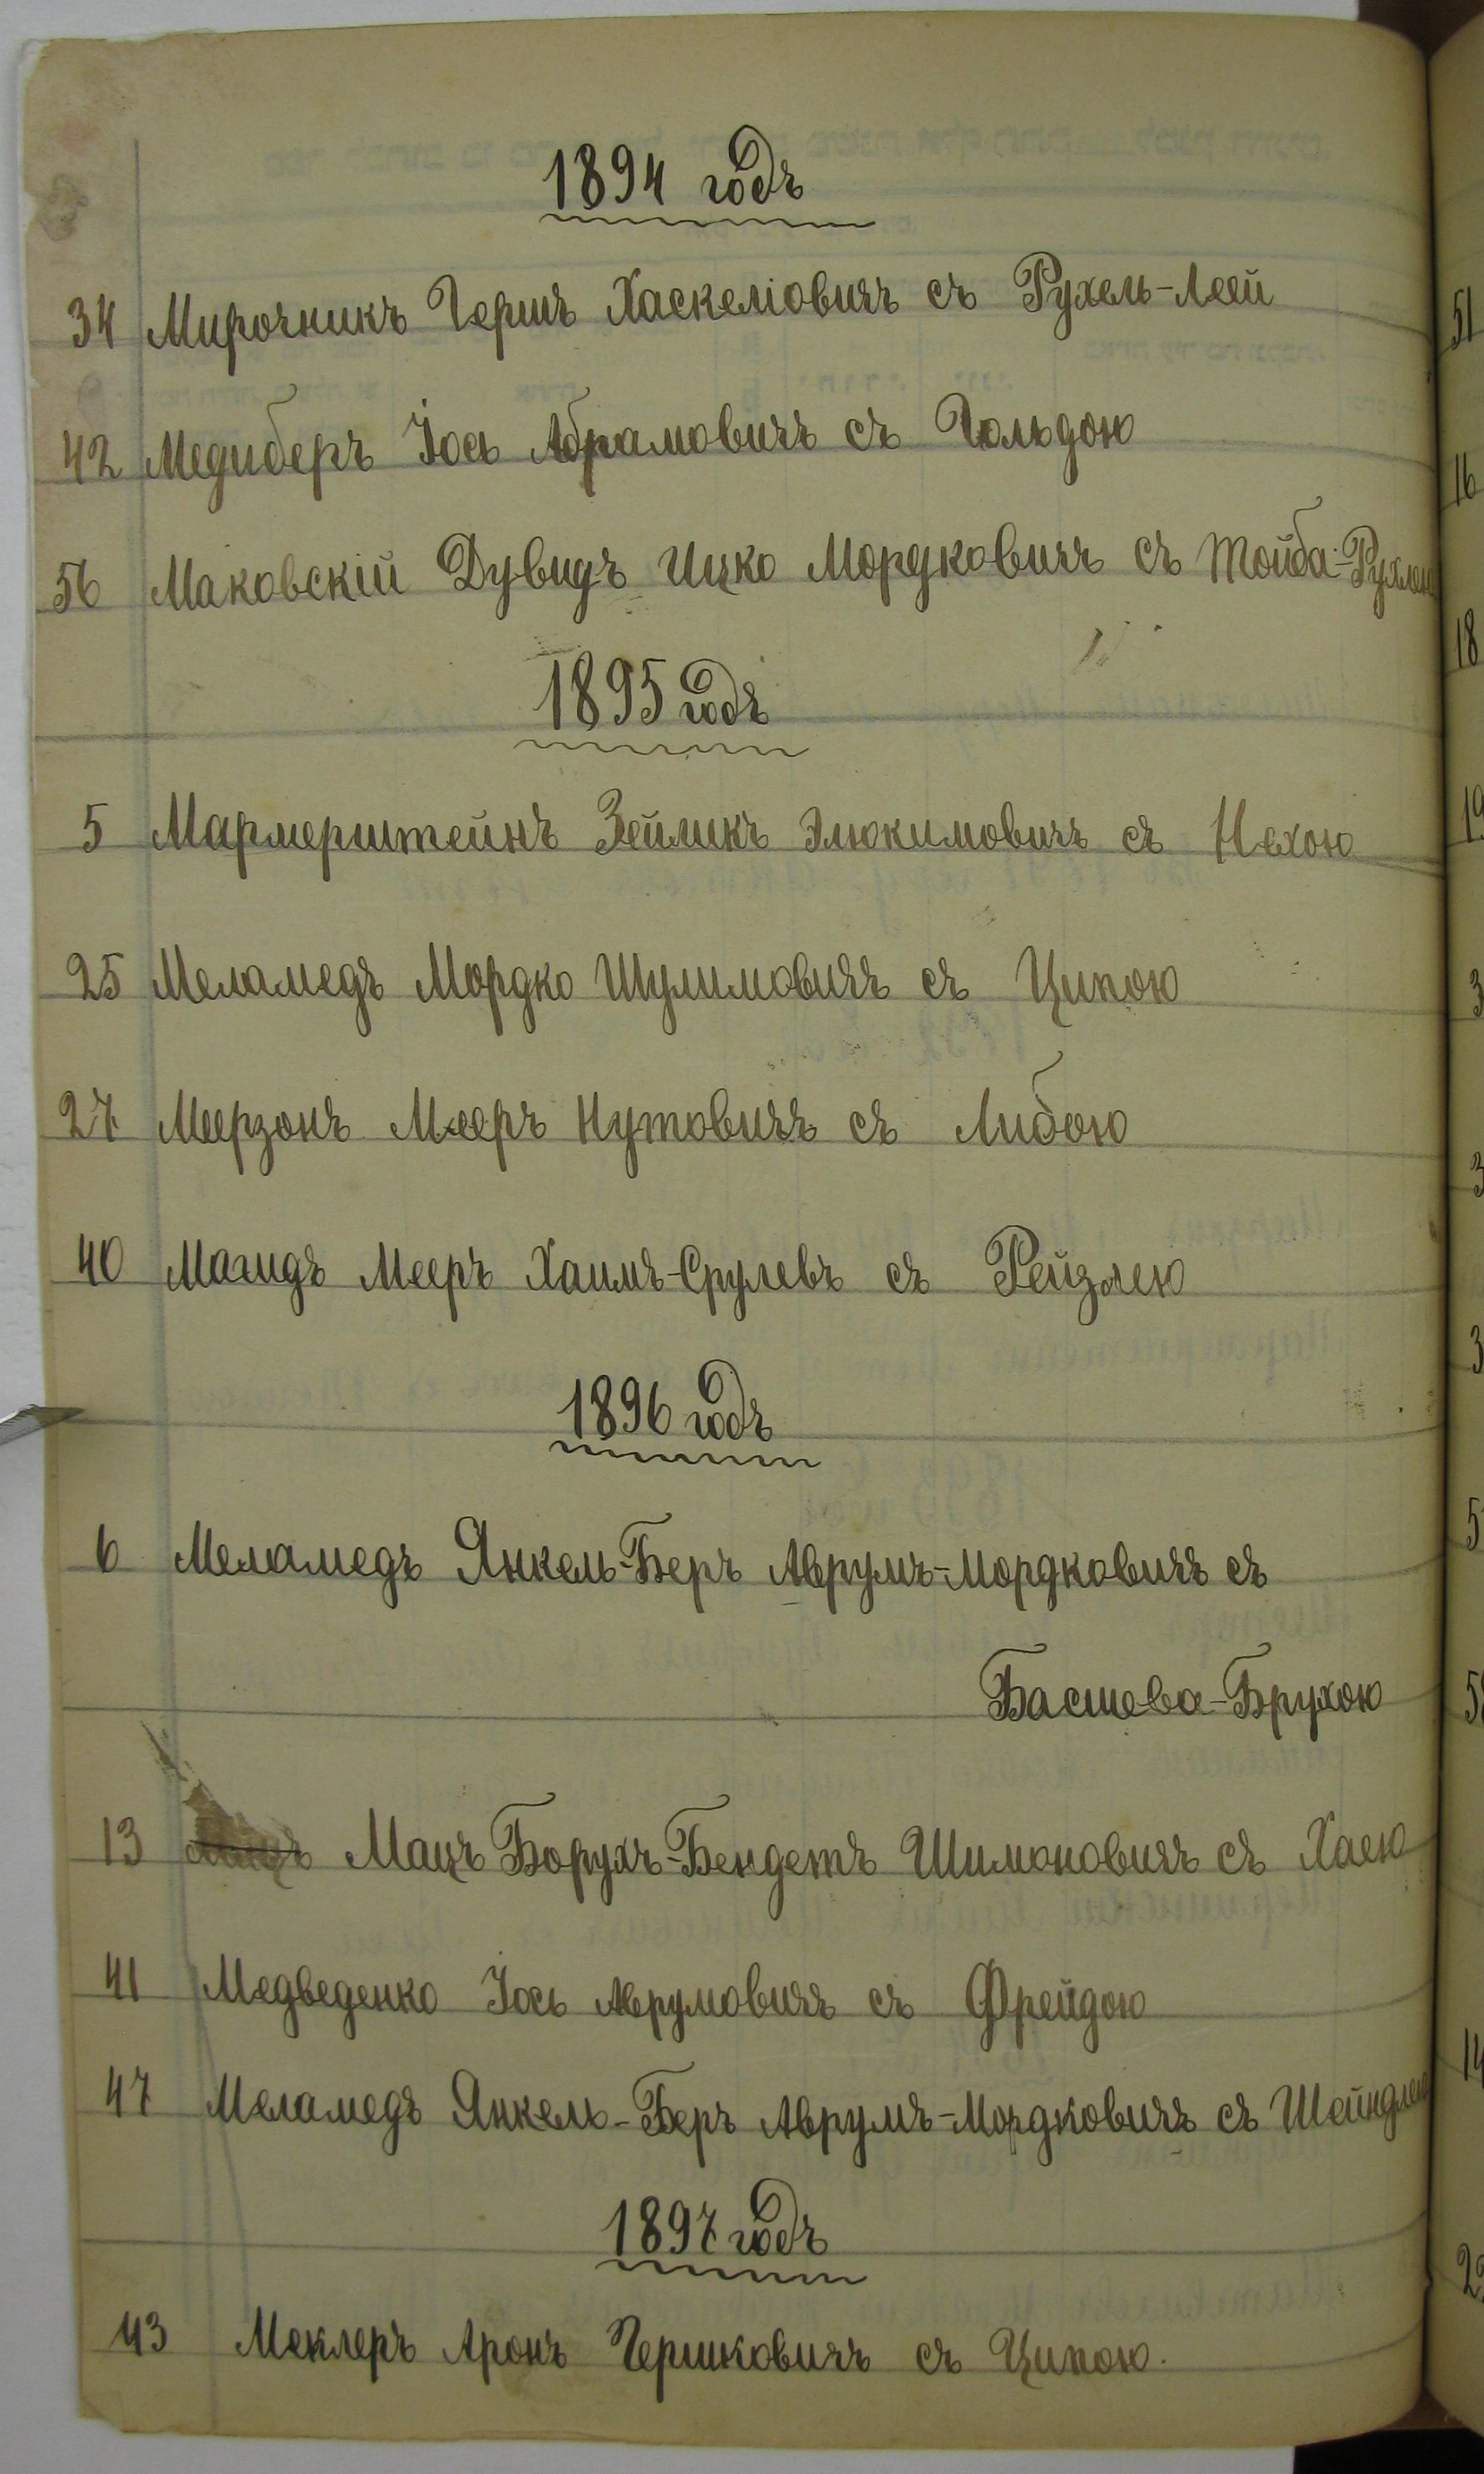 1894 годъ
34 Мирочникъ Гершъ Хаскеліовичъ съ Рухель-Леей
42 Медиберъ Іось Абрамовичъ съ Гольдою
56 Маковскій Дувидъ Ицко Мордковичъ съ Тойба-Рухлею
1895 годъ
5 Мармерштейнъ Зейликъ Элюкимовичъ съ Нехою
25 Меламедъ Мордко Шулимовичъ съ Ципою
27 Меерзонъ Мееръ Нутовичъ съ Либою
40 Магидъ Мееръ Хаимъ-Срулевъ съ Рейзлею
1896 годъ
6 Меламедъ Янкель-Беръ Аврумъ-Мордковичъ съ
Басшева-Брухою
13 Мацъ Борухъ-Бендетъ Шимоновичъ съ Хаею
41 Медведенко Іось Аврумовичъ съ Фрейдою
47 Меламедъ Янкель-Беръ Аврумъ-Мордковичъ съ Шейндлею
1897 годъ
43 Меклеръ Аронъ Гершковичъ съ Ципою.